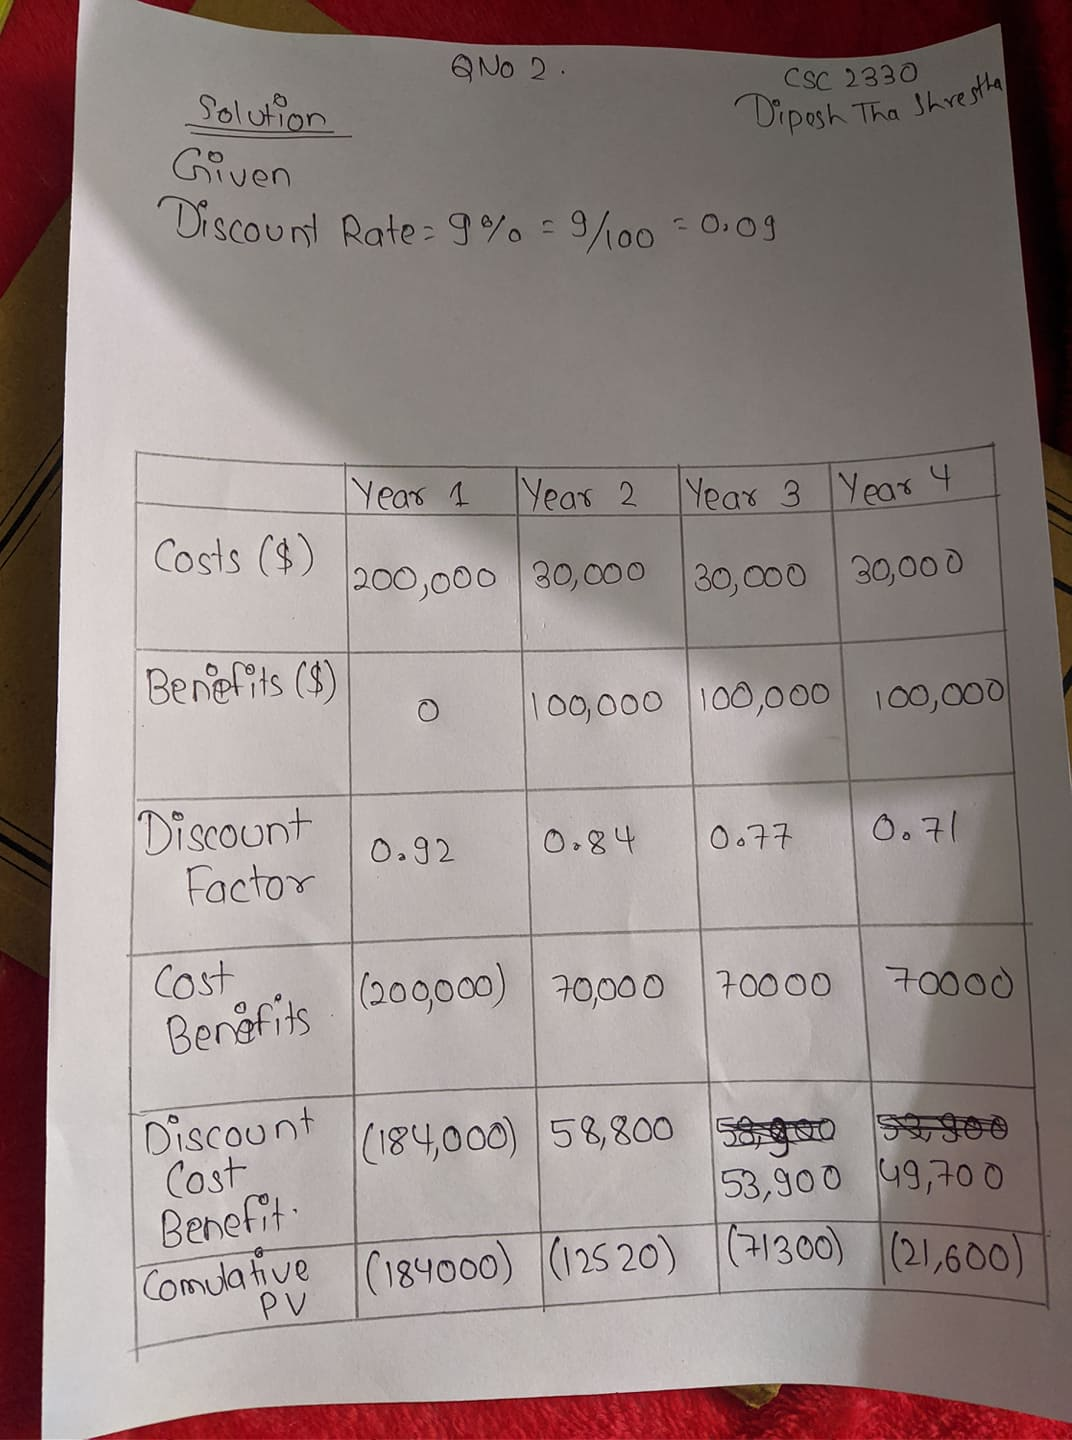 QNo 2.
CSC 2330
Diposh Tha Shrestha
Solution
Given
Discount Rate = 9% = 9/100 = 0.09
Year 1 Year 2 Year 3 Year 4
Costs ($) 200,000 30,000 30,000 30,000
Benefits ($) 0 100,000 100,000 100,000
Discount
Factor 0.92 0.84 0.77 0.71
Cost
Benefits (200,000) 70,000 70000 70000
Discount
Cost
Benefit. (184,000) 58,800 53,900 49,700
Comulative
PV (184000) (12520) (71300) (21,600)